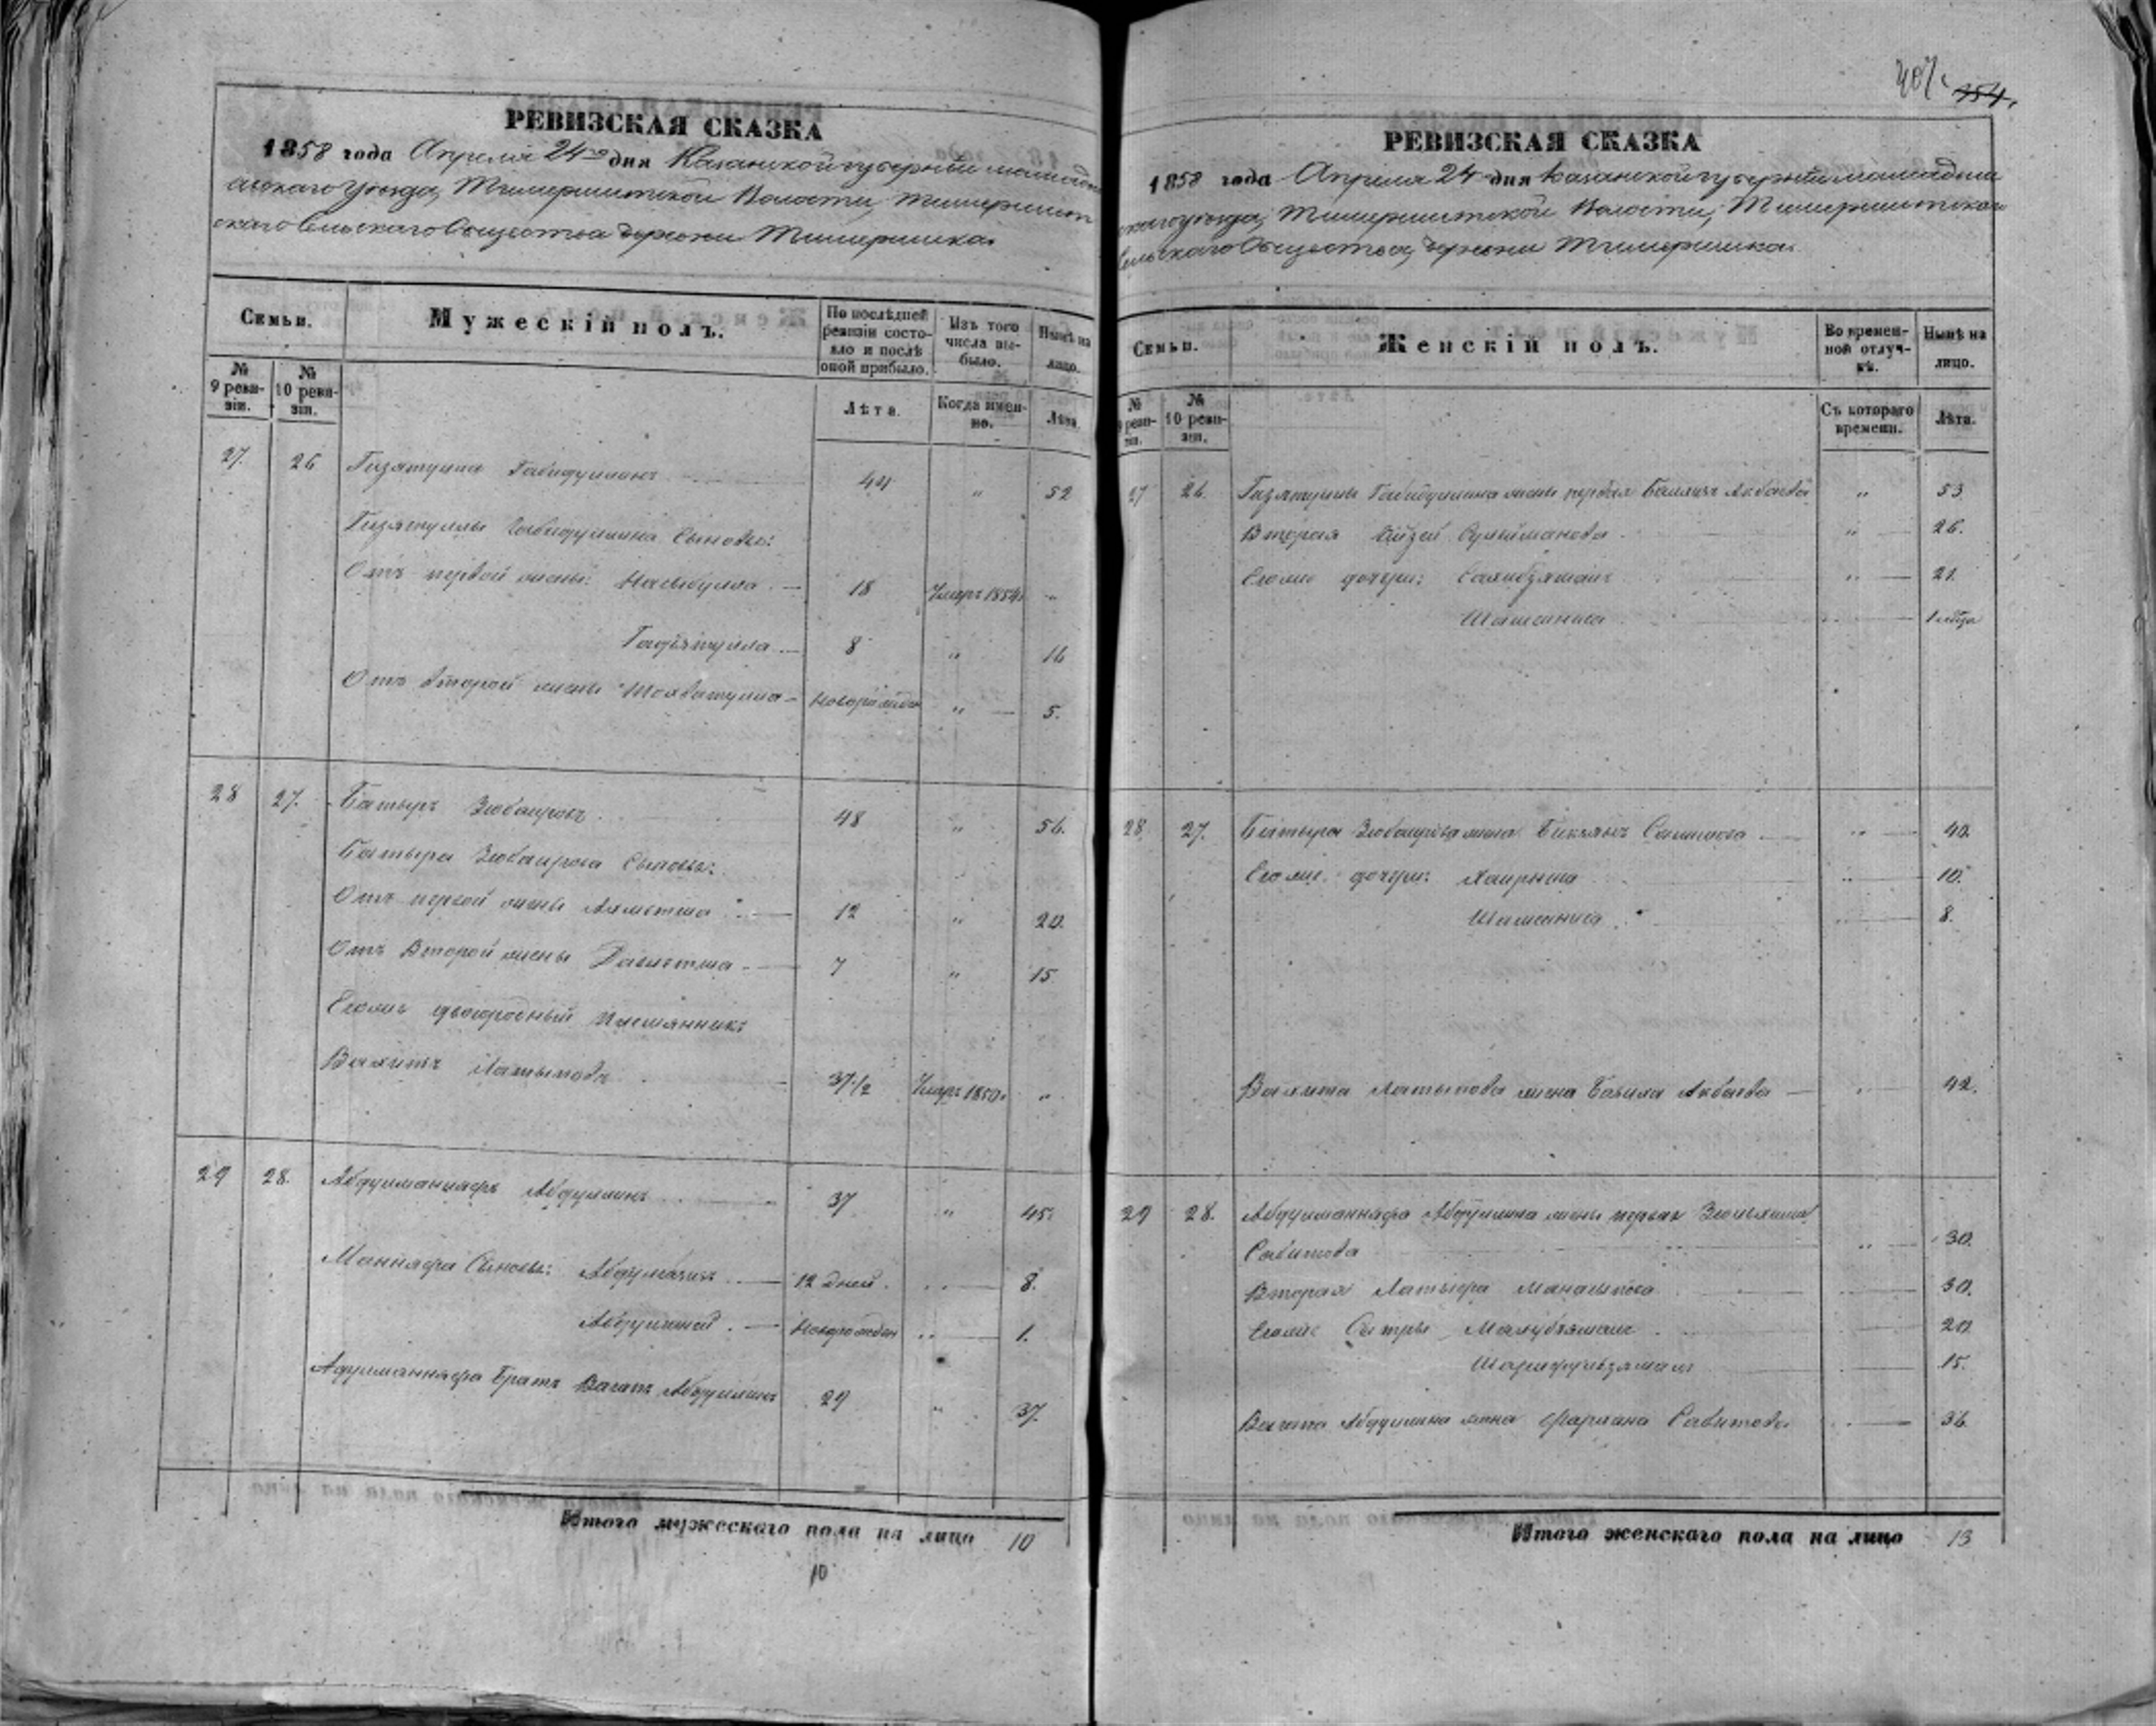 РЕВИЗСКАЯ СКАЗКА
1858 года Апреля 24го дня Казанской губернии Мамадыш
скаго уезда, Тимершитской Волости, Тимершит
скаго Сельскаго Общества деревни Тимершика
Семьи.
Мужескій полъ.
По послѣдней ревизіи состояло и послѣ оной прибыло.
Изъ того числа выбыло.
Нынѣ на лицо.
№ 9 ревизіи.
№ 10 ревизіи.
Лѣта.
Когда именно.
Лѣта.
27. 26 Гизятулла Габидуллинъ 44 " 52
Гизятуллы Габидуллина Сыновья:
Отъ первой жены: Насыбулла 18 Умеръ 1854 "
Гадіятулла 8 " 16
Отъ второй жены Новорожден " 5.
28 27. Батыръ Зюбаировъ 48 " 56.
Батыра Зюбаирова Сыновья:
Отъ первой жены Аляметша 12 " 20.
Отъ Второй жены Давлетша 7 " 15
Его же двоюродный Племянникъ
Валитъ Латыповъ 37 1/2 Умеръ 1850 "
29 28. Абдулманнафъ Абдуллинъ 37 " 45.
Маннафа Сыновья: Абдулвагапъ 12 дней. " 8.
Новорожден " 1.
Адулманнафа Братъ Вагапъ Абдуллинъ 29 " 37.
Итого мужескаго пола на лицо 10
10
407. 354.
РЕВИЗСКАЯ СКАЗКА
1858 года Апреля 24 дня Казанской губернии Мамадыш
скаго уезда, Тимершитской Волости, Тимершитскаго
Сельскаго Общества, деревни Тимершика.
Семьи.
Женскій полъ.
Во временной отлучкѣ.
Нынѣ на лицо.
№ 9 ревизіи.
№ 10 ревизіи.
Съ котораго времени.
Лѣта.
27 26. Гизятуллы Габидуллина жены первая Акбаева " 53
Вторая Сулейманова " 26.
Его же дочери: Сахибзямалъ " 21.
Шамсиниса " 1 мѣсяц
28. 27. Батыра Зюбаирова жена Салимова " 40.
Его же дочери: Хаирниса " 10.
Шамсиниса " 8.
Валита Латыпова жена Акбаева " 42.
29 28. Абдулманнафа Абдуллина жены первая
Сабитова " 30.
Вторая Латыфа Манасыпова 30.
Его же Сестры Махубзямалъ 20
Шарифульзямалъ 15.
Вагапа Абдуллина жена Сабитова 36.
Итого женскаго пола на лицо 13